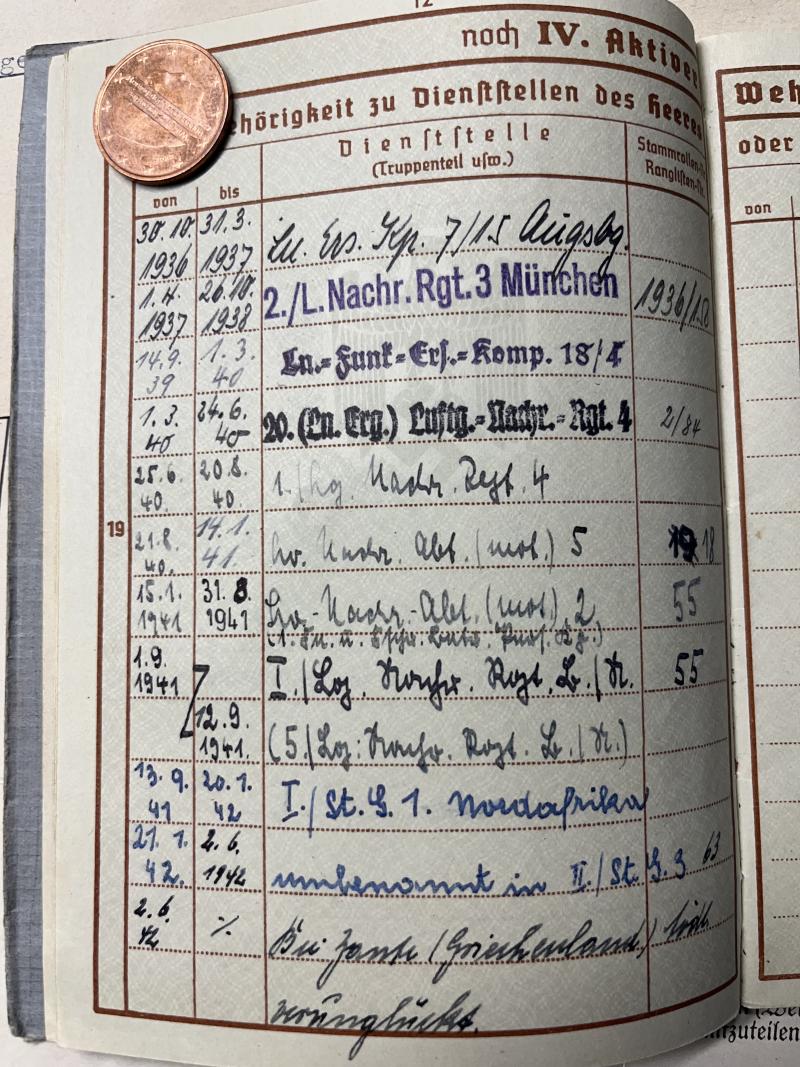 12
noch IV. Aktiver
ehörigkeit zu Dienststellen des Heeres
von
bis
Dienststelle
(Truppenteil usw.)
Stammrollen-Nr.
Ranglisten-Nr.
30.10. 1936
31.3. 1937
Ln. Ers. Kp. 7/15 Augsbg.
1.4. 1937
26.10. 1938
2./L.Nachr.Rgt.3 München
1936/158
14.9. 39
1.3. 40
Ln.-Funk-Ers.-Komp. 18/4
1.3. 40
24.6. 40
20.(Ln.Erg.) Luftg.-Nachr.-Rgt. 4
2/84
19
25.6. 40.
20.8. 40.
1./Lg. Nachr. Regt. 4
21.8. 40.
14.1. 41.
Nachr. Abt. (mot.) 5
18
15.1. 1941
31.8. 1941
Nachr.-Abt. (mot.) 2
55
1.9. 1941
I./Nachr. Rgt. /
55
12.9. 1941.
(5./Nachr. Rgt. /
13.9. 41
20.1. 42
I./St.G. 1. Nordafrika
21.1. 42.
2.6. 1942
umbenannt in II./St.G.3
63
2.6. 42
./.
Bei Zante (Griechenland) tödl.
verunglückt.
Weh
oder
von
nzuteilen